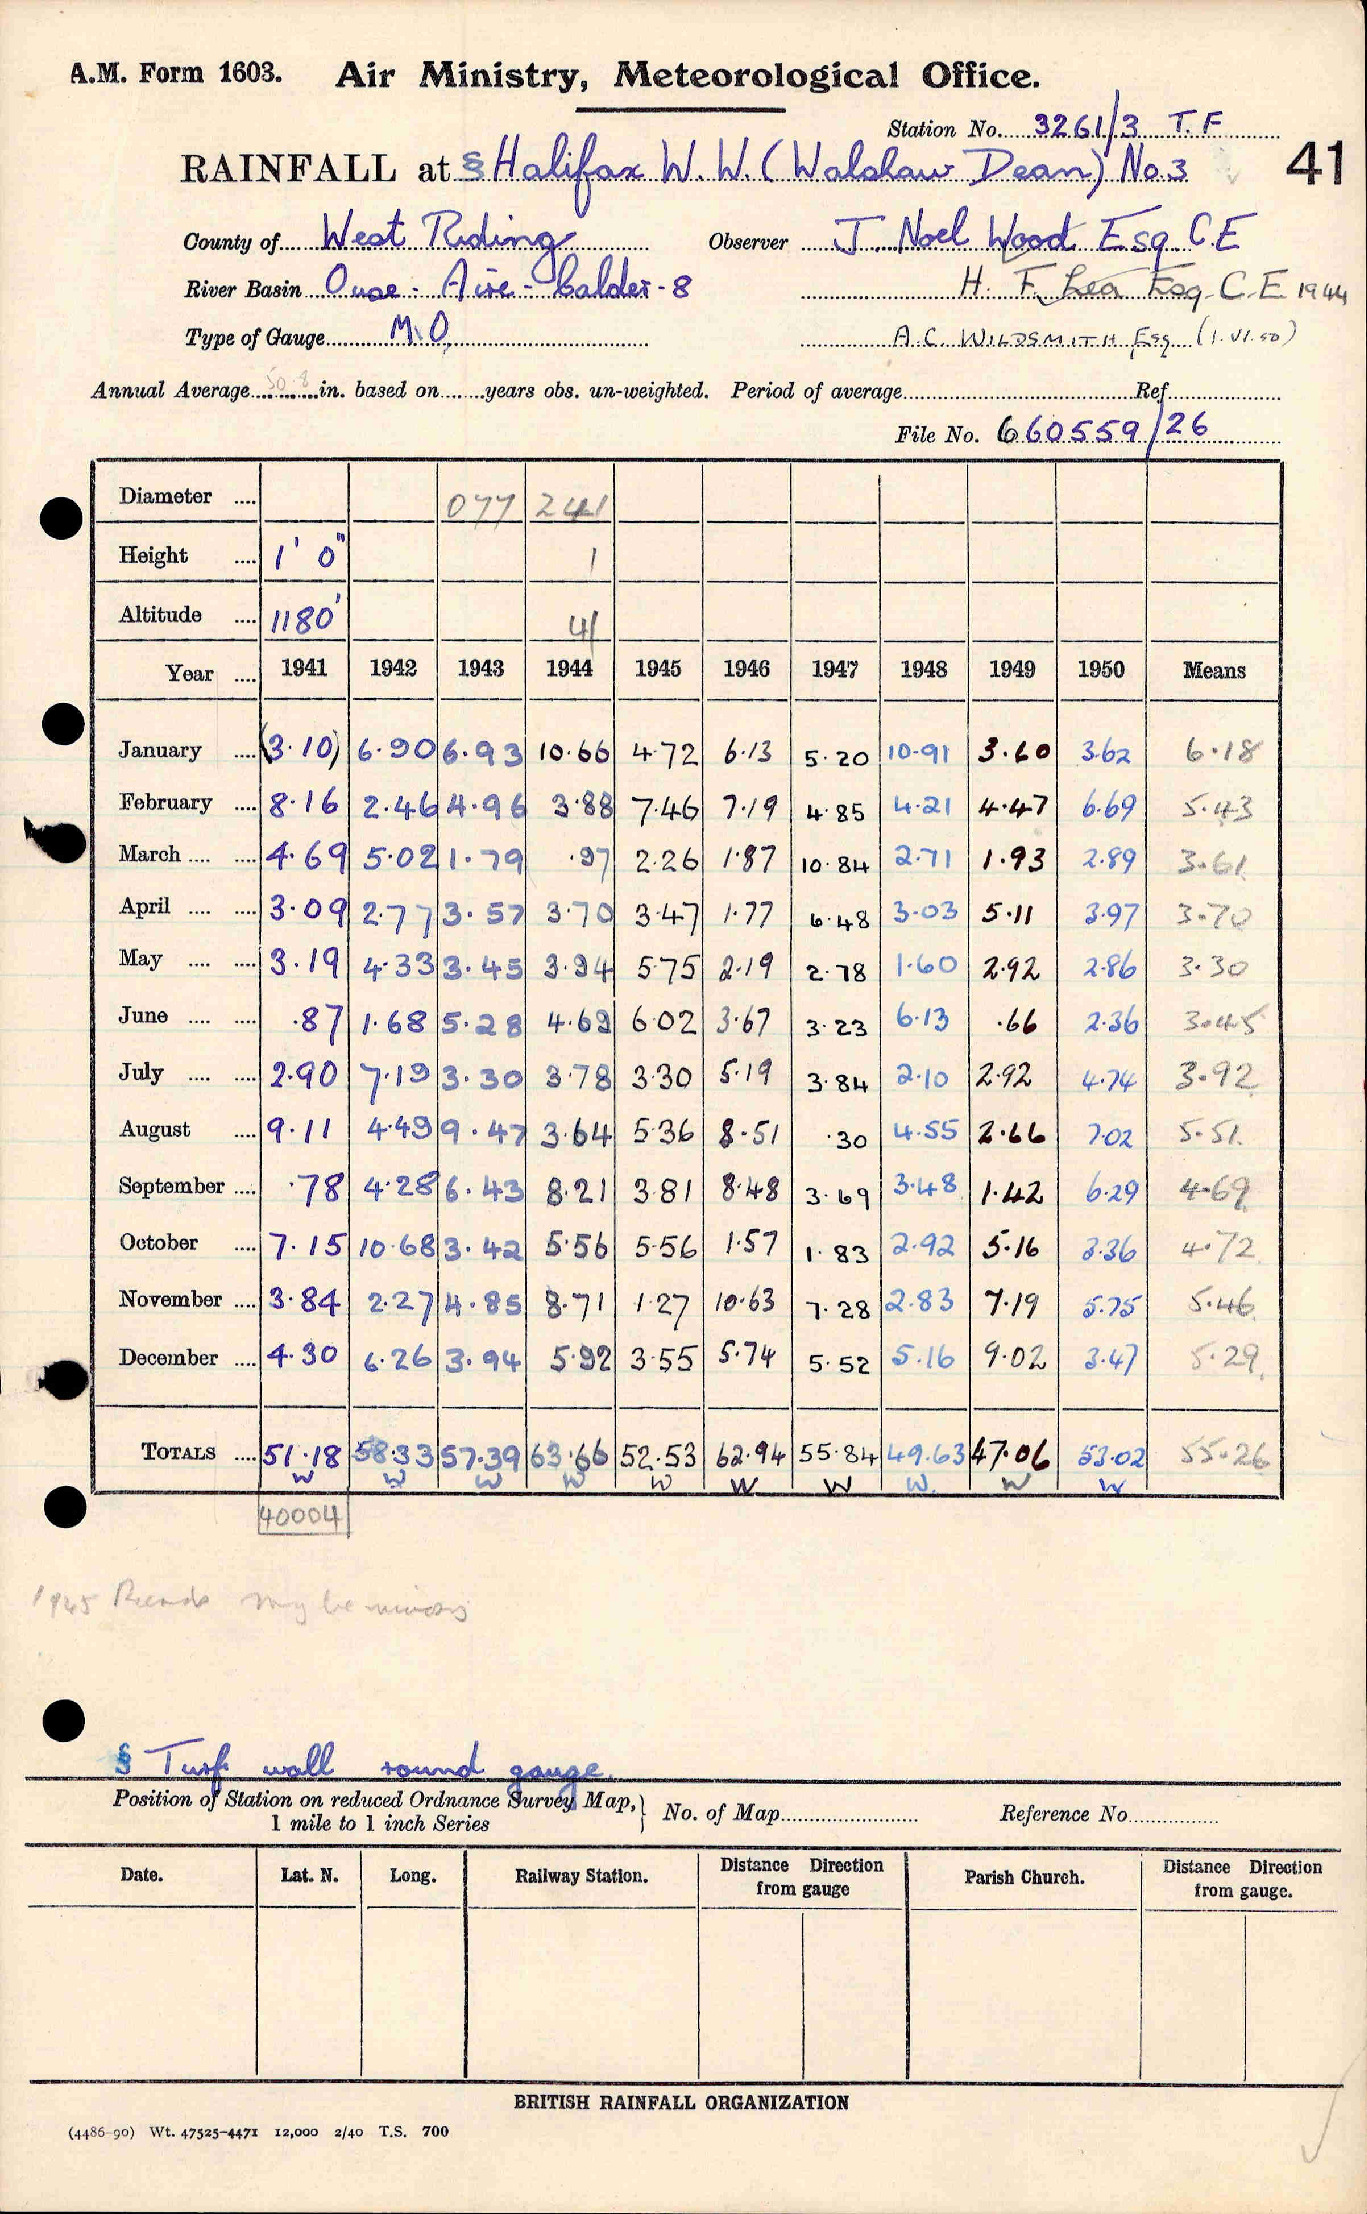 A.M. Form 1603. Air Ministry, Meteorological Office.
Station No. 3261/3 T.F
41
RAINFALL at § Halifax W.W. (Walshaw Dean) No.3
County of West Riding Observer J. Noel Wood Esq C.E
River Basin Ouse - Aire - Calder - 8 H. F. Lea Esq. C.E. 1944
Type of Gauge M.O. A.C. WILDSMITH Esq (1.VI.50)
Annual Average 50.8 in. based on years obs. un-weighted. Period of average Ref
File No. 660559/26
Diameter 077 241
Height 1' 0" 1
Altitude 1180' 41
Year 1941 1942 1943 1944 1945 1946 1947 1948 1949 1950 Means
January (3.10) 6.90 6.93 10.66 4.72 6.13 5.20 10.91 3.60 3.62 6.18
February 8.16 2.46 4.96 3.88 7.46 7.19 4.85 4.21 4.47 6.69 5.43
March 4.69 5.02 1.79 .97 2.26 1.87 10.84 2.71 1.93 2.89 3.61
April 3.09 2.77 3.57 3.70 3.47 1.77 6.48 3.03 5.11 3.97 3.70
May 3.19 4.33 3.45 3.94 5.75 2.19 2.78 1.60 2.92 2.86 3.30
June .87 1.68 5.28 4.69 6.02 3.67 3.23 6.13 .66 2.36 3.45
July 2.90 7.19 3.30 3.78 3.30 5.19 3.84 2.10 2.92 4.74 3.92
August 9.11 4.49 9.47 3.64 5.36 8.51 .30 4.55 2.66 7.02 5.51
September .78 4.28 6.43 8.21 3.81 8.48 3.69 3.48 1.42 6.29 4.69
October 7.15 10.68 3.42 5.56 5.56 1.57 1.83 2.92 5.16 3.36 4.72
November 3.84 2.27 4.85 8.71 1.27 10.63 7.28 2.83 7.19 5.75 5.46
December 4.30 6.26 3.94 5.92 3.55 5.74 5.52 5.16 9.02 3.47 5.29
TOTALS 51.18 58.33 57.39 63.66 52.53 62.94 55.84 49.63 47.06 53.02 55.26
W W W W W W W W W W
40004
1945 Records may be
§ Turf wall round gauge.
Position of Station on reduced Ordnance Survey Map, No. of Map Reference No.
1 mile to 1 inch Series
Date. Lat. N. Long. Railway Station. Distance Direction from gauge Parish Church. Distance Direction from gauge.
BRITISH RAINFALL ORGANIZATION
(4486-90) Wt. 47525-4471 12,000 2/40 T.S. 700